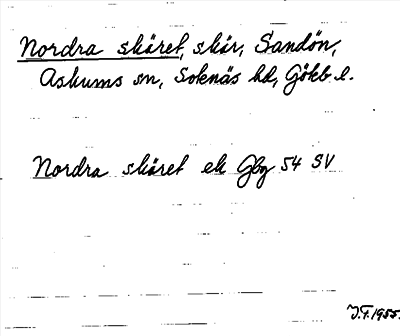 Nordra skäret, skär, Sandön,
Askums sn, Sotenäs hd, Gökb l.
Nordra skäret ek Gbg 54 SV
J.F. 1955.